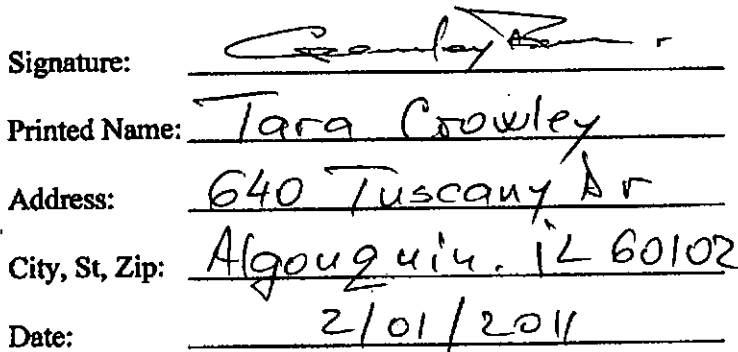 Signature:
Printed Name: Tara Crowley
Address: 640 Tuscany Dr
City, St, Zip: Algonquin. iL 60102
Date: 2/01/2011